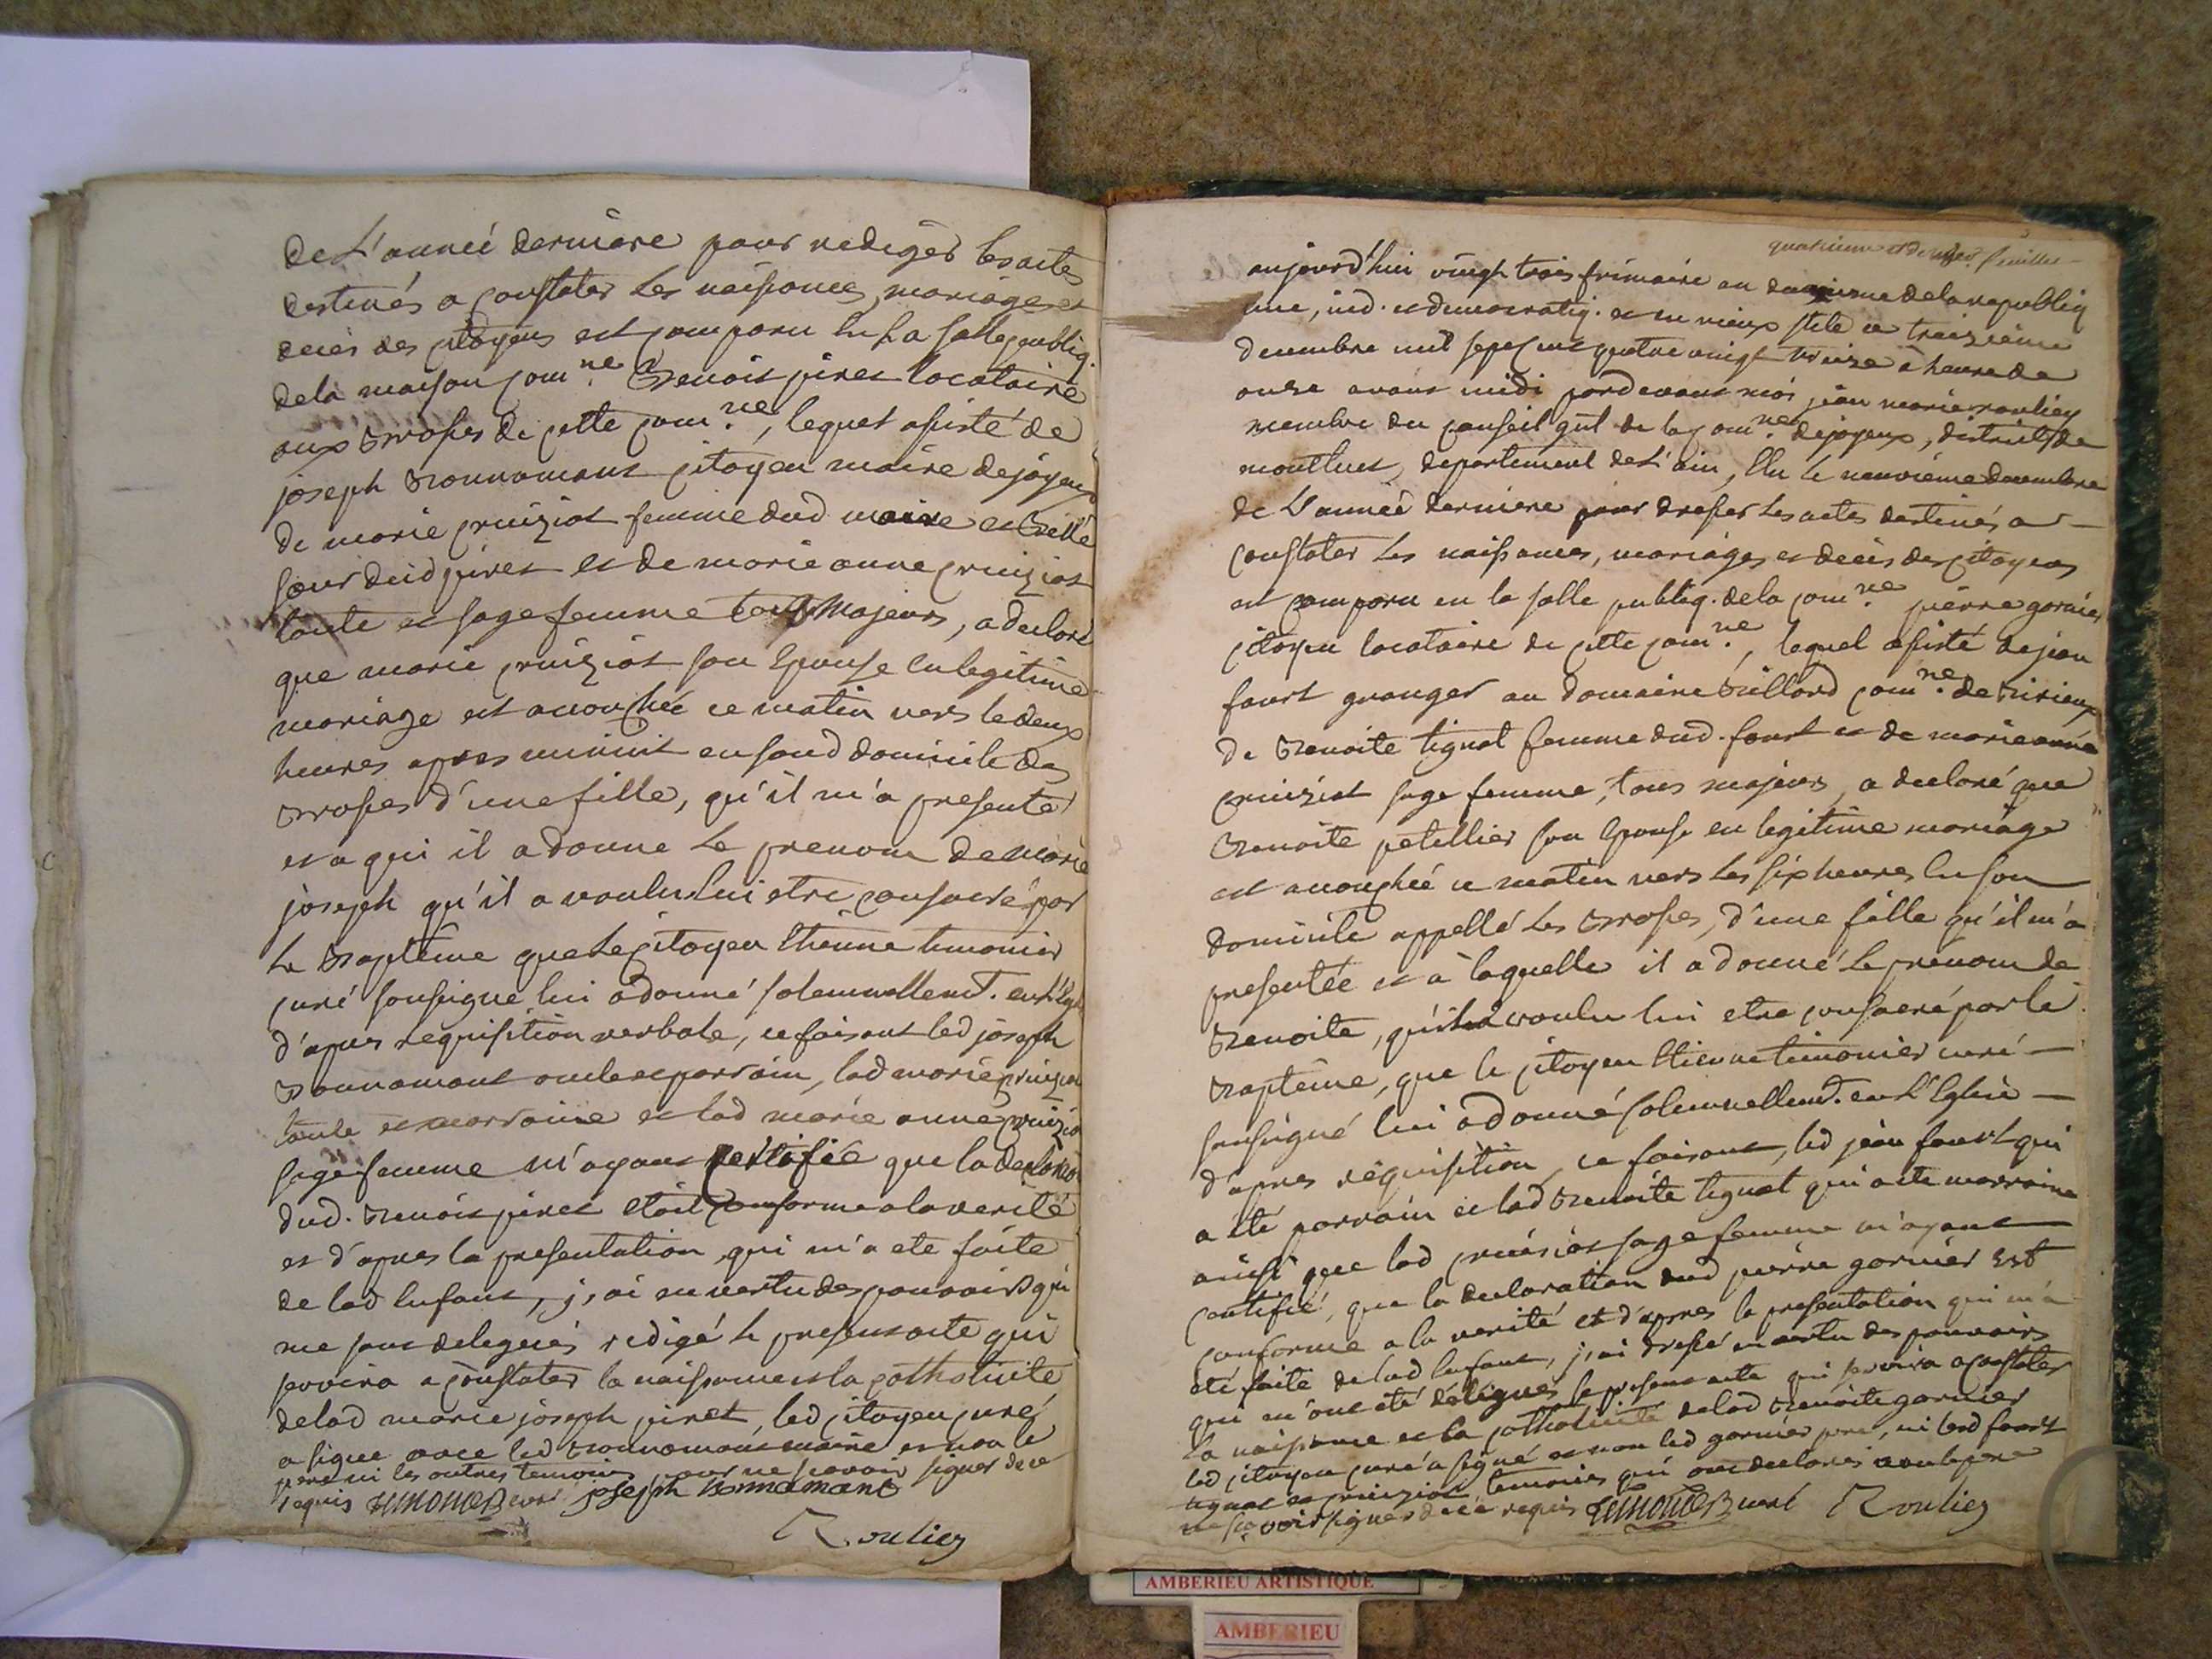 de L'année derniére pour rediger les actes
destinés a constater les naissances, mariages et
décès des citoyens est comparu en la salle publiq.
de la maison com.ne Benoit piret locataire
aux Brosses de cette com.ne, lequel assisté de
joseph Bonnamant citoyen maire de joyeux
de marie pruiziot femme dud maire et Belle
sœur dud piret et de marie anne pruiziot
tante et sage femme tous Majeurs, a declaré
que marie pruiziot son Epouse en legitime
mariage est accouchée ce matin vers le deux
heures apres minuit en soud domicile des
Brosses d'une fille, qu'il m'a presenté
et a qui il a donne le prenom de marie
joseph qu'il a voulu lui etre consacré par
le Baptême que le citoyen Etienne timonier
curé soussigné lui a donné solemnellemt. en L'Egl
d'apres requisition verbale, ce faisant led joseph
Bonnamant oncle et parrain, lad marie pruiziot
tante et marraine et lad marie anne pruiziot
sage femme m'ayant certifiée que la declarâon
dud. Benoit piret etoit conforme a la verité
et d'apres la presentation qui m'a ete faite
de lad Enfant, j'ai en vertu des pouvoirs qui
me sont delegués redigé le present acte qui
servira a constater la naissance et la catholicité
de lad marie joseph piret, led citoyen curé
a signe avec led Bonnamant maire et non le
pere ni les autres temoins pour ne sçavoir signer de ce
requis TIMONIER curé joseph Bonnamant
Roulier
quatrieme et dernier feuillet
aujourd'hui vingt trois frimaire an deuxieme de la republiq
une, ind. et democratiq. et en vieux stile ce treizième
decembre mil sept cent quatre vingt treize à heure de
onze avant midi pardevant moi jean marie roulier
membre du conseil gñl de la com.ne de joyeux, district de
montluet, departement de L'ain, Elu le neuvième decembre
de L'année derniere pour dresser les actes destinés a
constater les naissances, mariages et décès des citoyens
est comparu en la salle publiq. de la com.ne pierre garnier
citoyen locataire de cette com.ne, lequel assisté de jean
faurt granger au domaine Billard com.ne de Birieux
de Benoite tignat femme dud. faurt et de marie anne
pruiziot sage femme, tous majeurs, a declaré que
Benoite petellier son Epouse en legitime mariage
est accouchée ce matin vers les six heures en son
domicile appellé les Brosses, d'une fille qu'il m'a
presentée et à laquelle il a donné le prénom de
Benoite, qu'il a voulu lui etre consacré par le
Baptême, que le citoyen Etienne timonier curé
soussigné lui a donné solemnellemt. en L'Eglise
d'apres réquisition, ce faisant, led jean faurt qui
a été parrain et lad Benoite tignat qui a été marraine
ainsi que lad pruiziot sage femme m'ayant
certifié, que la declaration dud pierre garnier Est
conforme a la verité et d'apres la presentation qui m'a
été faite de lad Enfant, j'ai dressé en vertu des pouvoirs
qui m'ont été délégués le present acte qui servira a constater
la naissance et la catholicité de lad Benoite garnier
led citoyen curé a signé et non led garnier pere, ni led faurt
tignat et pruiziot temoins qui ont declarés avec le pere
ne sçavoir signer de ce requis TIMONIER curé Roulier
AMBERIEU ARTISTIQUE
AMBERIEU